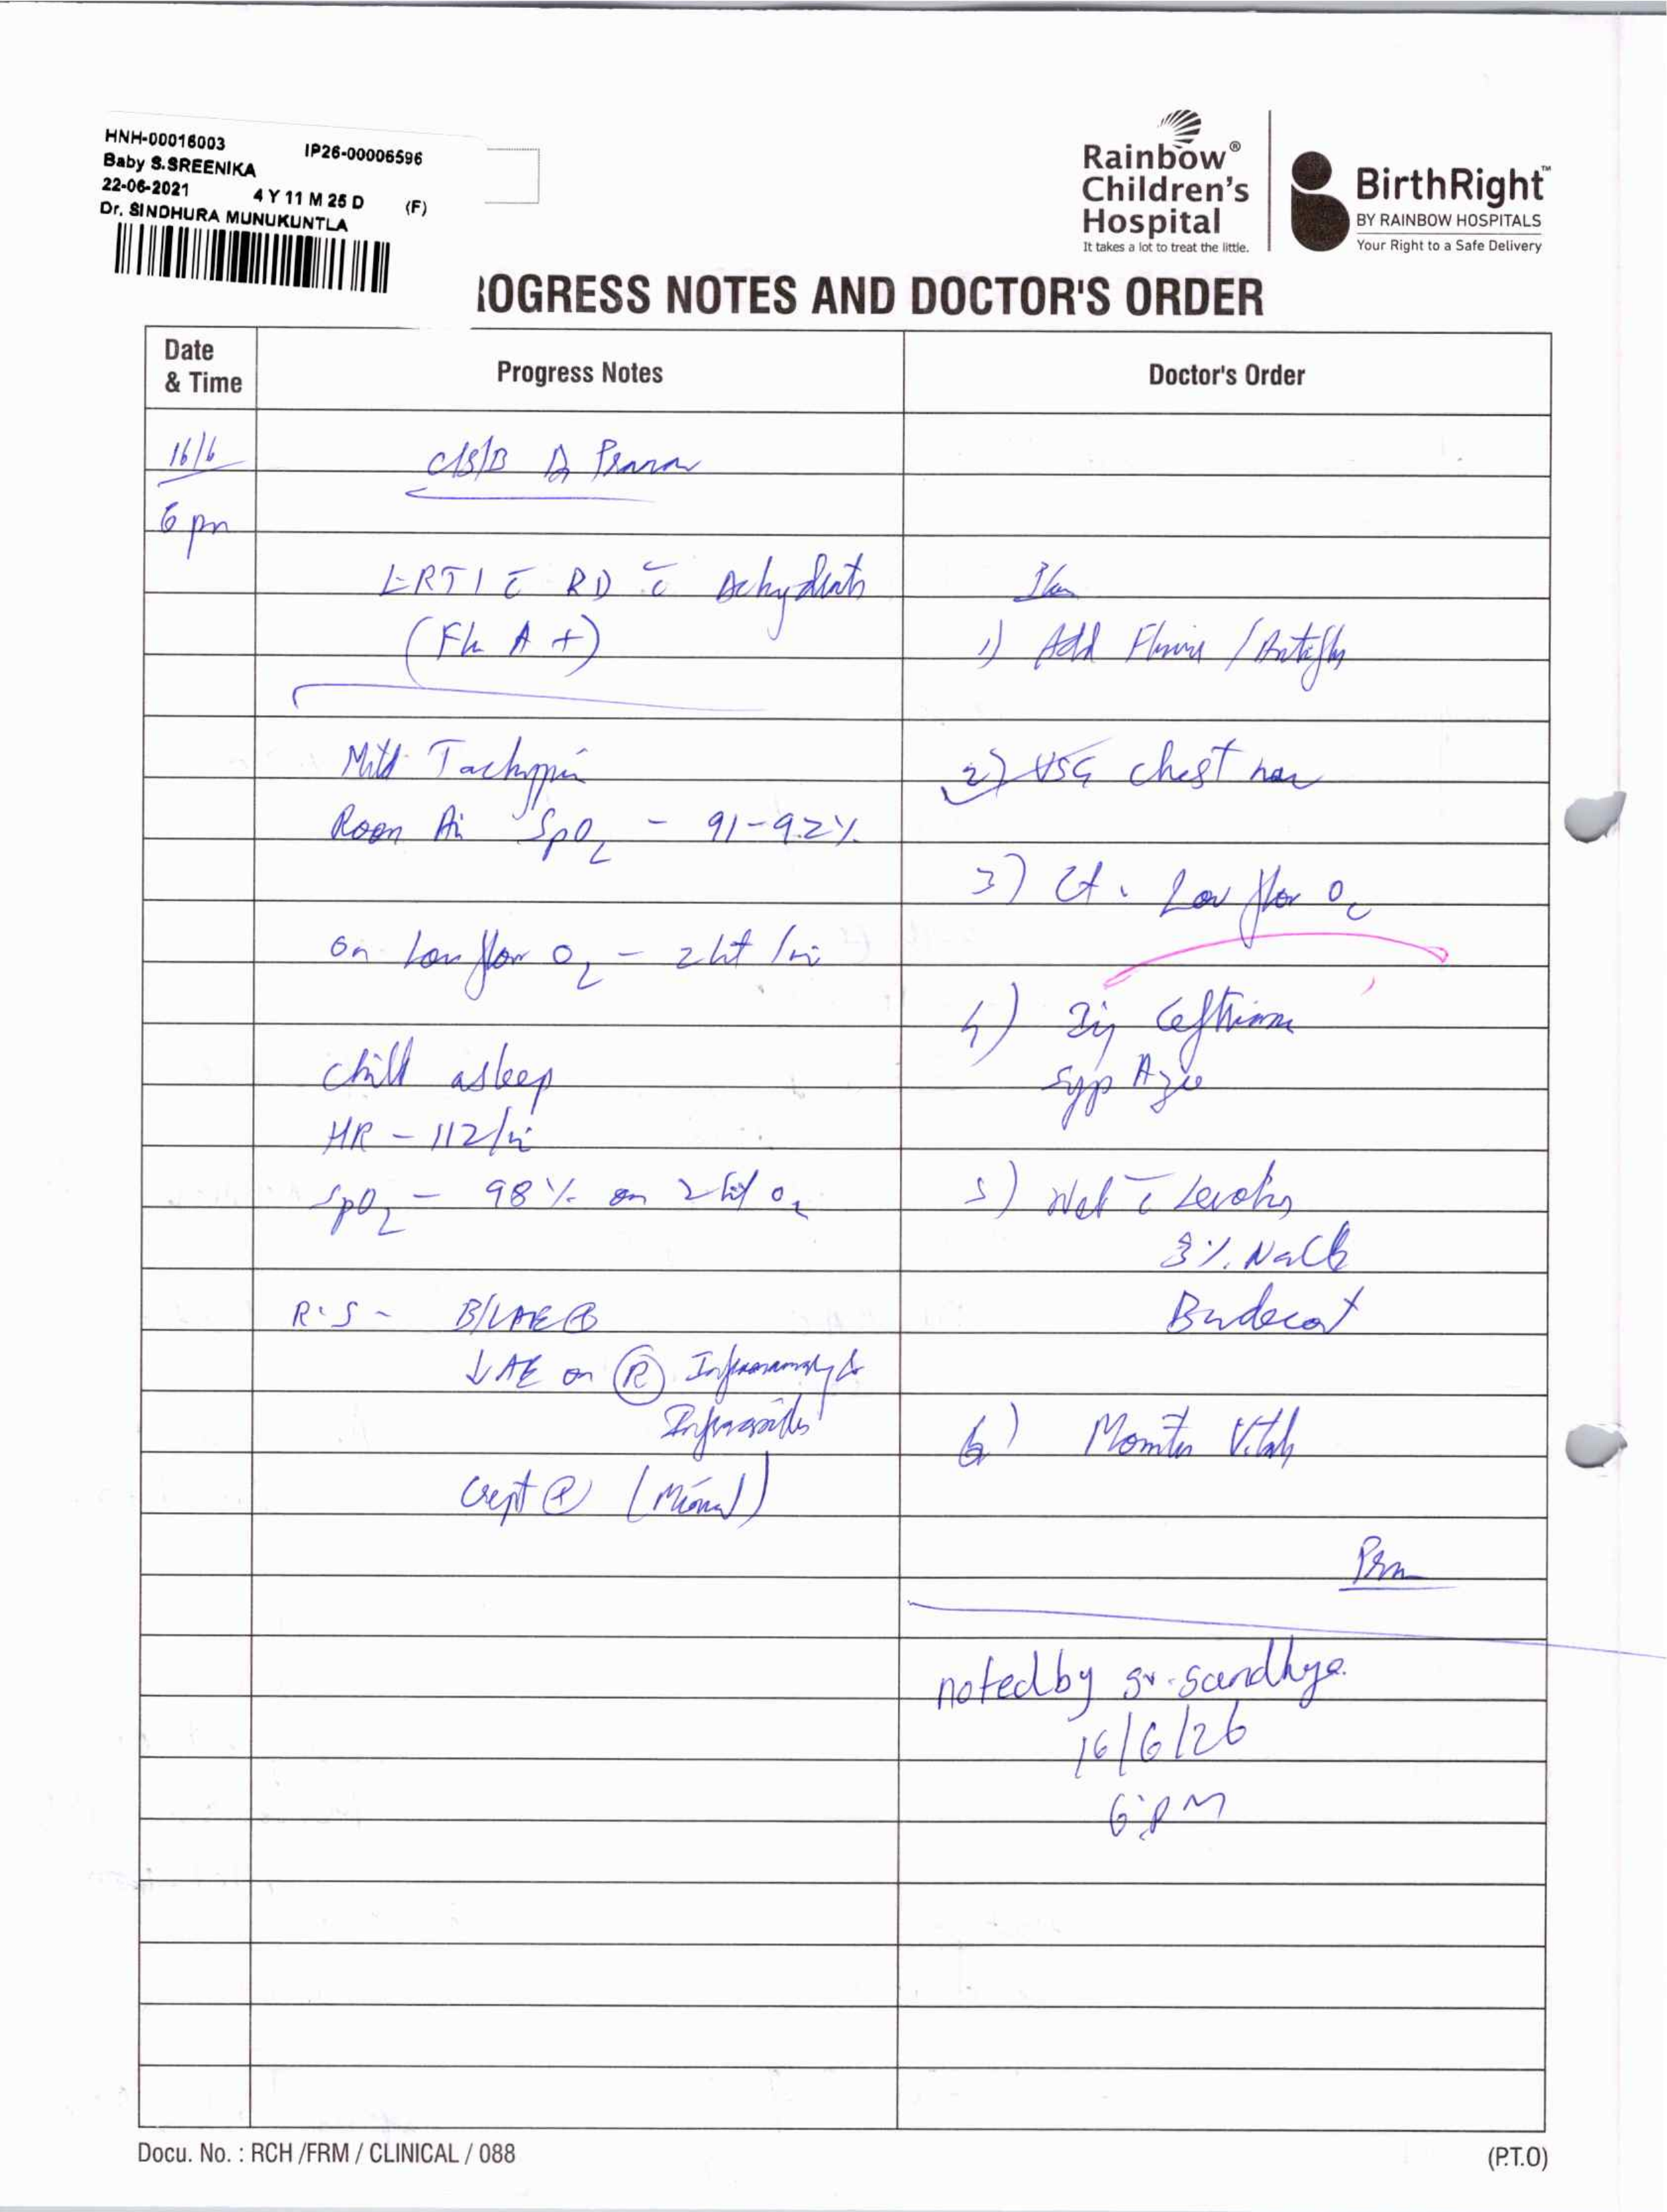 HNH-00016003 IP26-00006596
Baby S.SREENIKA
22-06-2021 4 Y 11 M 25 D (F)
Dr. SINDHURA MUNUKUNTLA
Rainbow®
Children's
Hospital
It takes a lot to treat the little.
BirthRight™
BY RAINBOW HOSPITALS
Your Right to a Safe Delivery
ROGRESS NOTES AND DOCTOR'S ORDER
Date
& Time
Progress Notes
Doctor's Order
16/6
C/S/B Dr
6 pm
LRTI c̄ RD c̄
(Flu A +)
Plan
1) Add / Antiflu
Mild
Room Air SpO2 - 91-92%
2) USG chest now
3) Ct. Low flow O2
on Low flow O2 - 2 lit /min
4) Inj
Syp
child asleep
HR - 112/min
SpO2 - 98% on 2 lit O2
5) Neb c̄
3% Nacl
Budecort
R.S - B/L AE ⊕
↓ AE on Ⓡ
Crept ⊕
6) Monitor Vitals
noted by sr. sandhya.
16/6/26
6 PM
Docu. No. : RCH /FRM / CLINICAL / 088
(P.T.O)